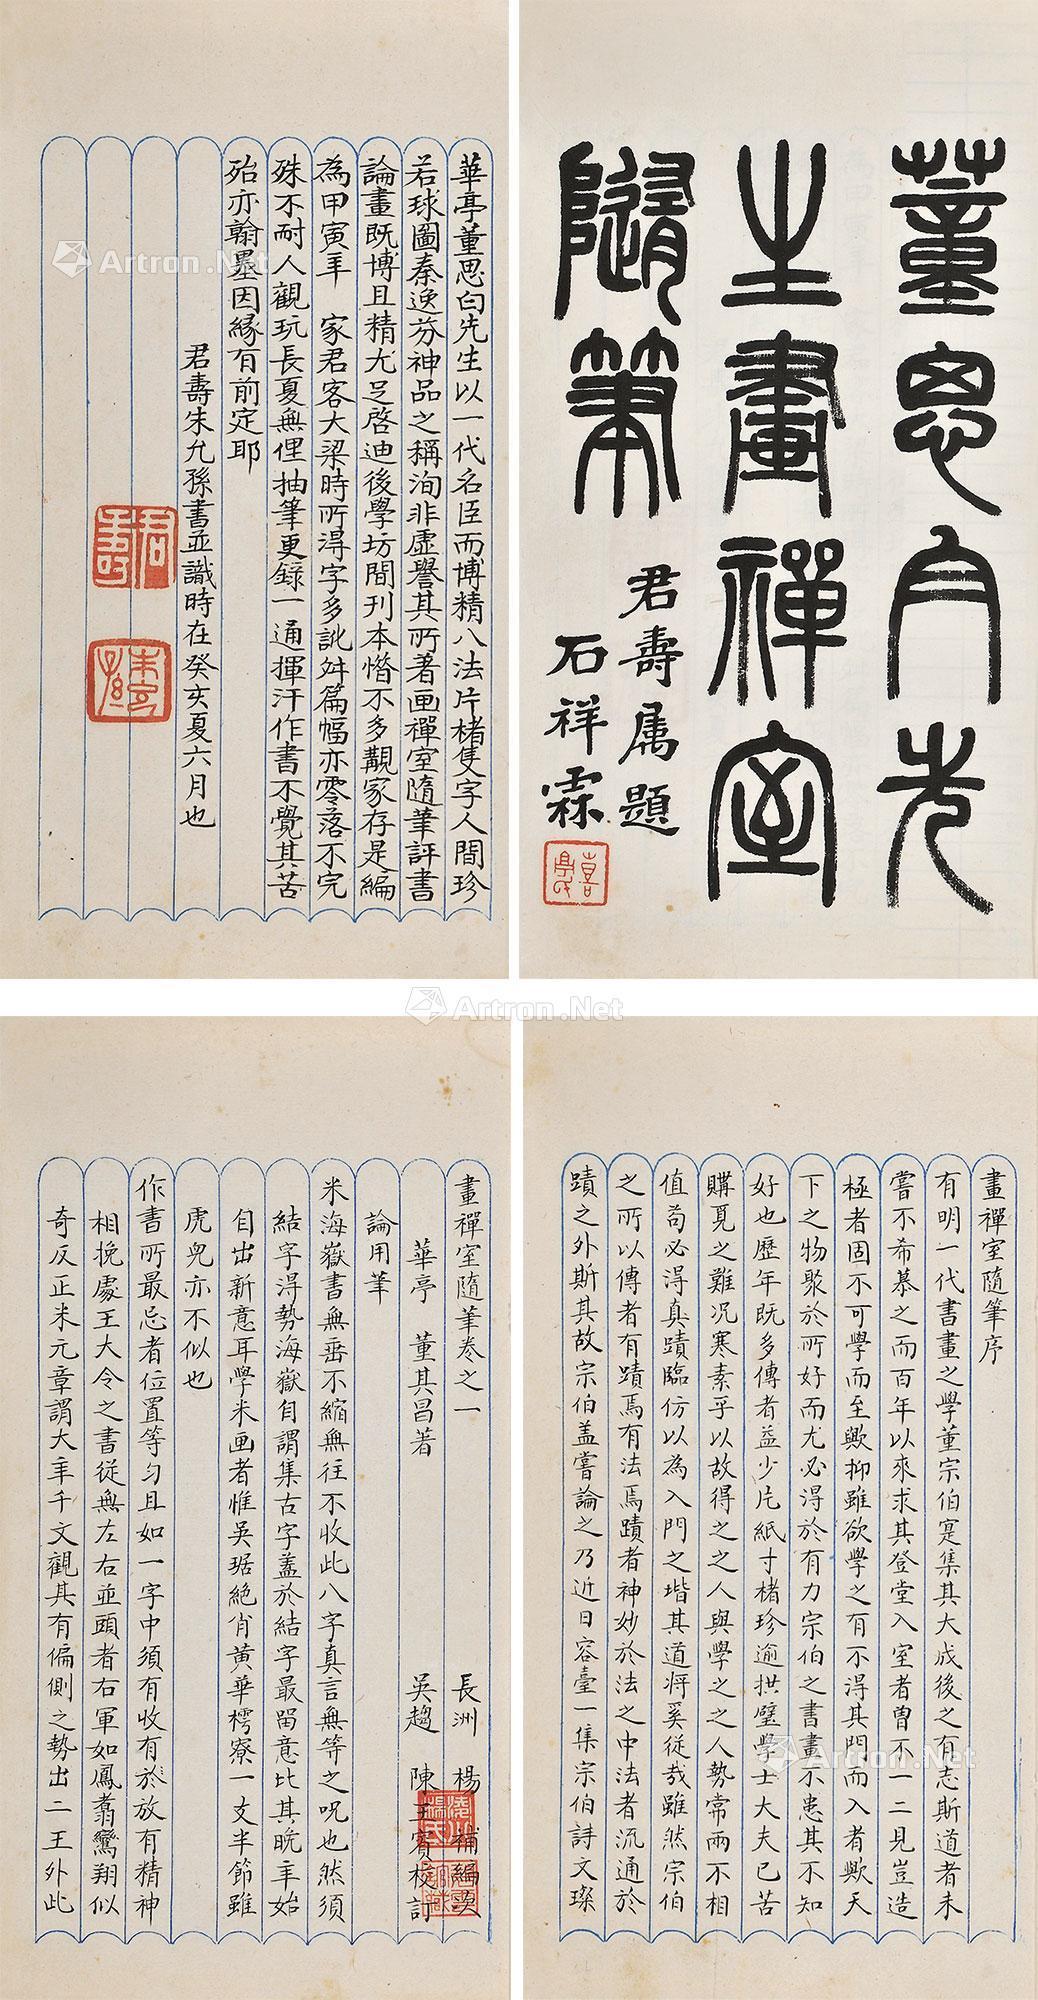 董思白先
生畫禪室
隨筆
君壽属題
石祥霖
華亭董思白先生以一代名臣而博精八法片楮隻字人間珍
若球圖秦逸芬神品之稱洵非虛譽其所著画禪室隨筆評書
論畫既博且精尤足啓迪後學坊間刊本惜不多覯家存是編
為甲寅年 家君客大梁時所得字多訛舛篇幅亦零落不完
殊不耐人觀玩長夏無俚抽筆更錄一通揮汗作書不覺其苦
殆亦翰墨因緣有前定耶
君壽朱允孫書並識時在癸亥夏六月也
君壽
畫禪室隨筆序
有明一代書畫之學董宗伯寔集其大成後之有志斯道者未
嘗不希慕之而百年以來求其登堂入室者曾不一二見豈造
極者固不可學而至歟抑雖欲學之有不得其門而入者歟天
下之物聚於所好而尤必得於有力宗伯之書畫不患其不知
好也歷年既多傳者益少片紙寸楮珍逾拱璧學士大夫已苦
購覓之難况寒素乎以故得之之人與學之之人勢常兩不相
值苟必得真蹟臨仿以為入門之堦其道将奚従哉雖然宗伯
之所以傳者有蹟焉有法焉蹟者神妙於法之中法者流通於
蹟之外斯其故宗伯盖嘗論之乃近日容臺一集宗伯詩文璨
畫禪室隨筆卷之一
華亭 董其昌著
長洲 楊 補編次
吳趨 陳王賓校訂
論用筆
米海嶽書無垂不縮無往不收此八字真言無等之呪也然須
結字得勢海嶽自謂集古字盖於結字最留意比其晩年始
自出新意耳學米画者惟吳琚絶肖黄華樗寮一支半節雖
虎兕亦不似也
作書所最忌者位置等匀且如一字中須有收有放有精神
相挽處王大令之書従無左右並頭者右軍如鳳翥鸞翔似
奇反正米元章謂大年千文觀其有偏側之勢出二王外此
Artron.Net